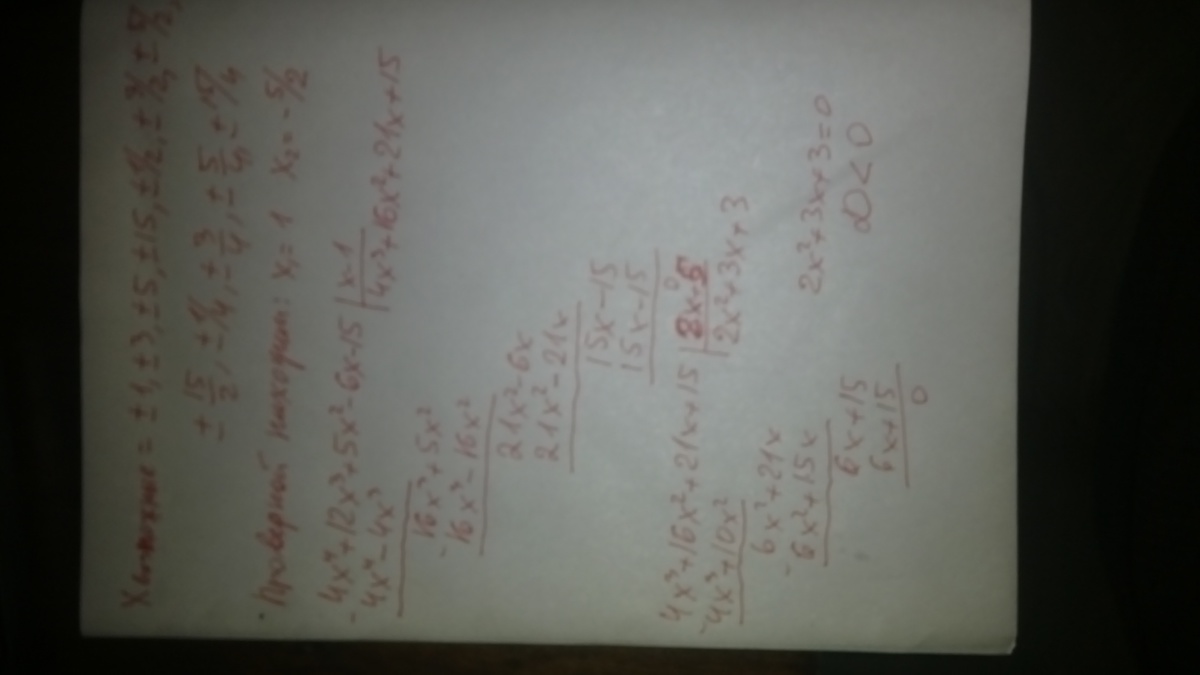 = ± 1, ± 3, ± 5, ± 15, ± 1/2, ± 3/2, ± 5/2,
± 15/2, ± 1/4, ± 3/4, ± 5/4, ± 15/4
· Проверкой находим: x₁ = 1 x₂ = - 5/2
- 4x⁴+12x³+5x²-6x-15 | x-1
4x⁴-4x³ | 4x³+16x²+21x+15
- 16x³+5x²
16x³-16x²
21x²-6x
21x²-21x
15x-15
15x-15
0
- 4x³+16x²+21x+15 |
4x³+10x² | 2x²+3x+3
- 6x²+21x
6x²+15x
6x+15
6x+15
0
2x²+3x+3=0
D<0